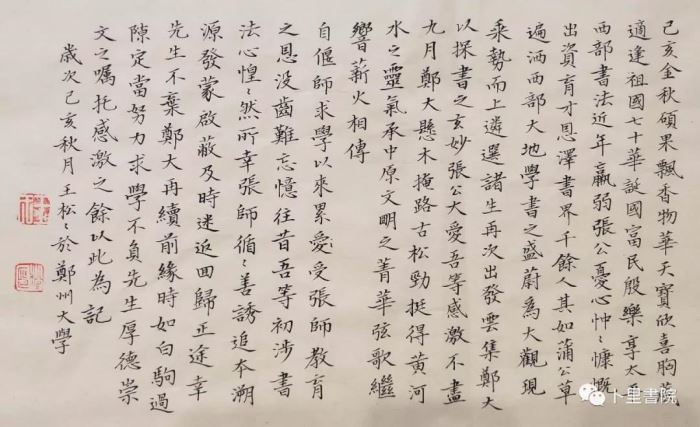 己亥金秋碩果飄香物華天寶欣喜胸
適逢祖國七十華誕國富民殷樂享太
西部書法近年羸弱張公憂心忡々慷慨
出資育才恩澤書界千餘人其如蒲公草
遍洒西部大地學書之盛蔚為大觀現
乘勢而上遴選諸生再次出發雲集鄭大
以探書之玄妙張公大愛吾等感激不盡
九月鄭大懸木掩路古松勁挺得黃河
水之靈氣承中原文明之菁華弦歌繼
響薪火相傳
自偃師求學以來累愛受張師教育
之恩沒齒難忘憶往昔吾等初涉書
法心惶々然所幸張師循々善誘追本溯
源發蒙啟蔽及時迷返回歸正途幸
先生不棄鄭大再續前緣時如白駒過
隙定當努力求學不負先生厚德崇
文之囑托感激之餘以此為記
歲次己亥秋月王松々於鄭州大學
卜里書院